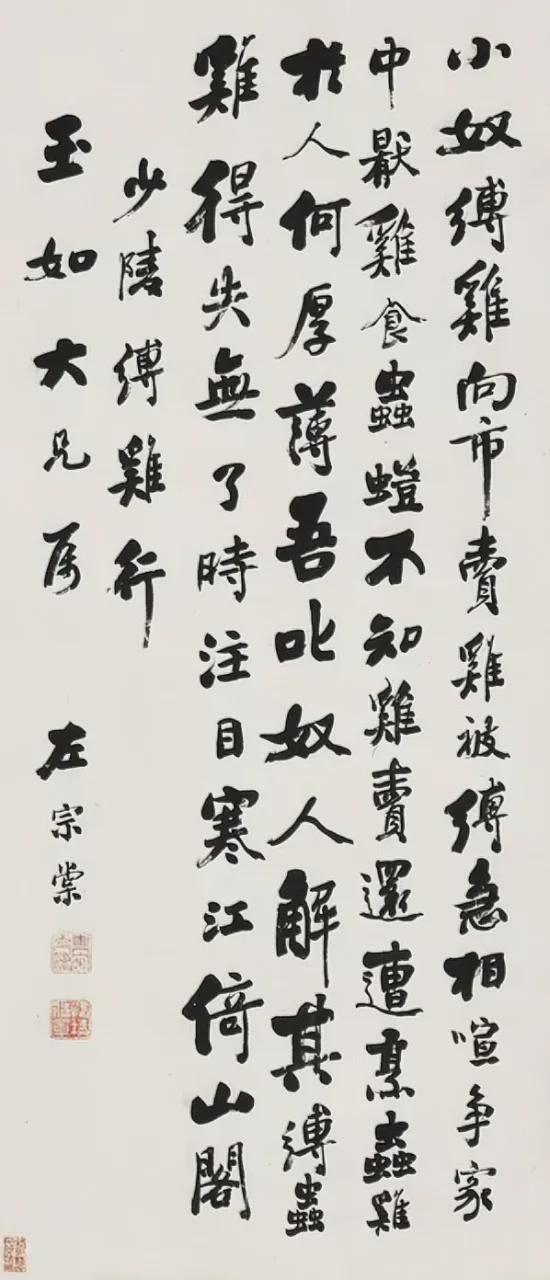 小奴縛雞向市賣雞被縛急相喧争家
中厭雞食蟲螘不知雞賣還遭烹蟲雞
於人何厚薄吾叱奴人解其縛蟲
雞得失無了時注目寒江倚山閣
少陵縛雞行
玉如大兄属
左宗棠